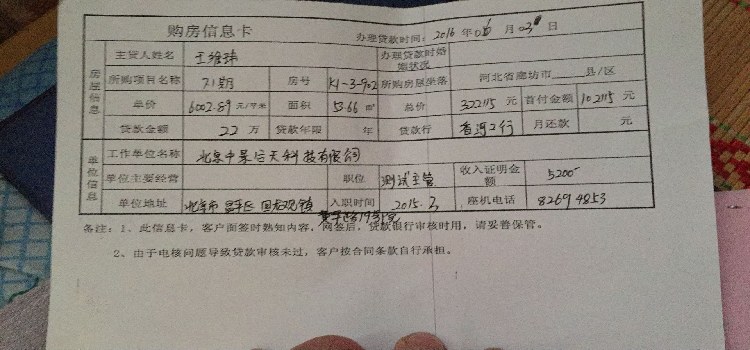 购房信息卡
办理贷款时间：2016 年 06 月 03 日
主贷人姓名 王 办理贷款时婚姻状况
房屋信息
所购项目名称 71期 房号 K1-3-902 所购房屋坐落 河北省廊坊市 县/区
单价 6002.89 元/平米 面积 53.66 m² 总价 322115 元 首付金额 102115 元
贷款金额 22 万 贷款年限 年 贷款行 香河工行 月还款 元
单位信息
工作单位名称 北京中昊信天科技有限公司
单位主要经营 职位 测试主管 收入证明金额 5200
单位地址 北京市昌平区回龙观镇 入职时间 2015.3 座机电话 82694853
备注：1、此信息卡，客户面签时熟知内容，网签后，贷款银行审核时用，请妥善保管。
2、由于电核问题导致贷款审核未过，客户按合同条款自行承担。